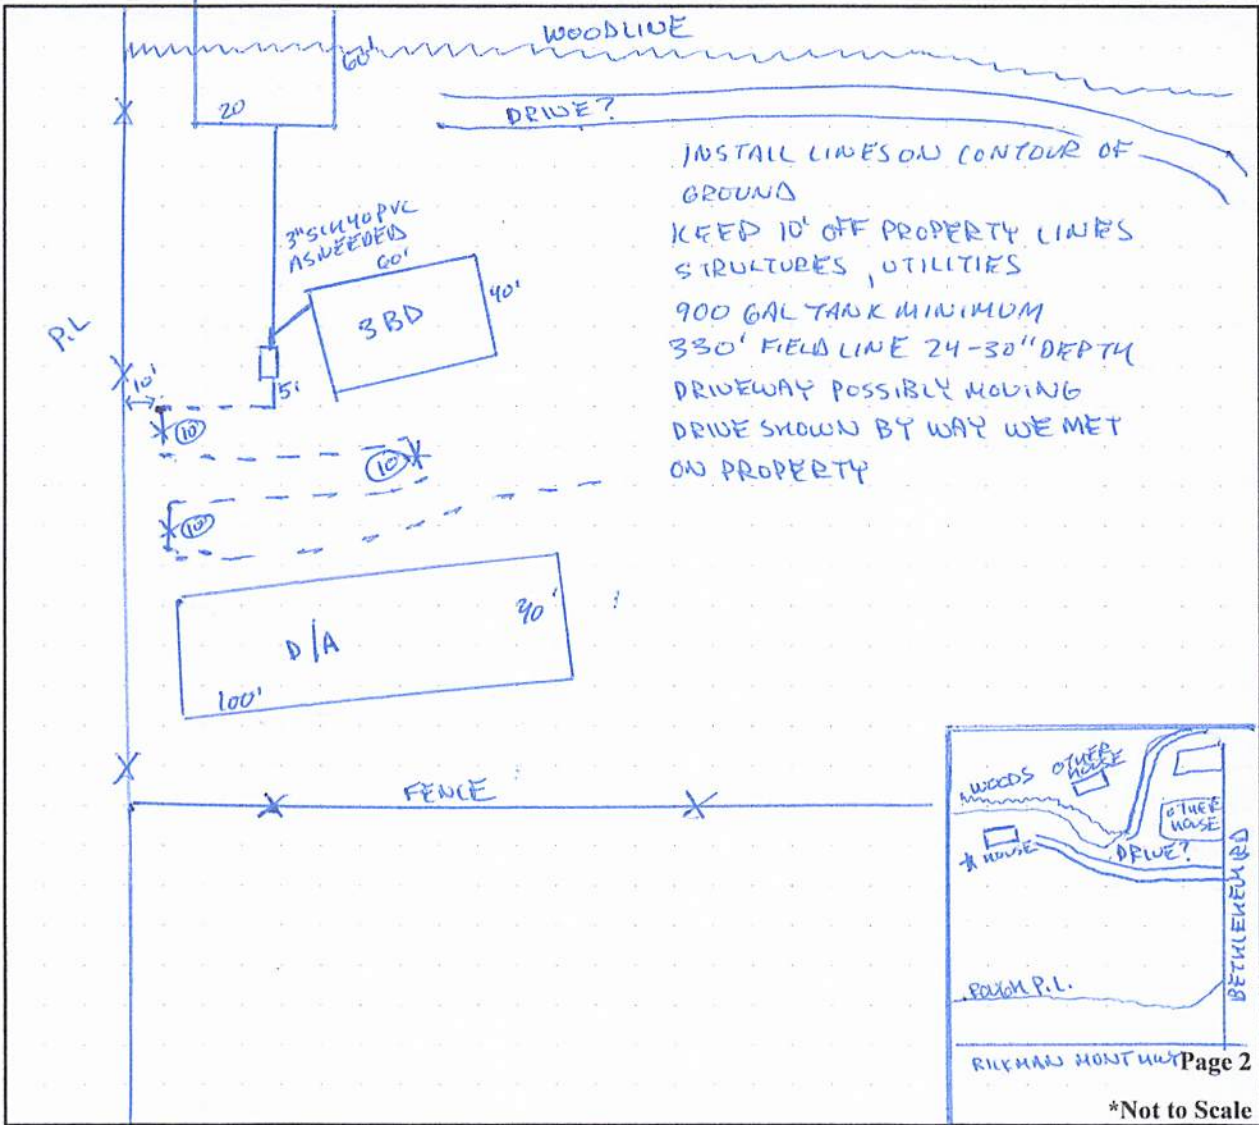 WOODLINE
60'
20
DRIVE?
INSTALL LINES ON CONTOUR OF
GROUND
KEEP 10' OFF PROPERTY LINES
STRUCTURES, UTILITIES
900 GAL TANK MINIMUM
330' FIELD LINE 24-30" DEPTH
DRIVEWAY POSSIBLY MOVING
DRIVE SHOWN BY WAY WE MET
ON PROPERTY
3" SCH 40 PVC
AS NEEDED
60'
40'
3 BD
P.L
10'
5'
10'
10'
10'
D/A
100'
FENCE
WOODS
OTHER
HOUSE
OTHER
HOUSE
HOUSE
DRIVE?
BETHLEHEM RD
ROUGH P.L.
RICKMAN MONT HWY
Page 2
*Not to Scale